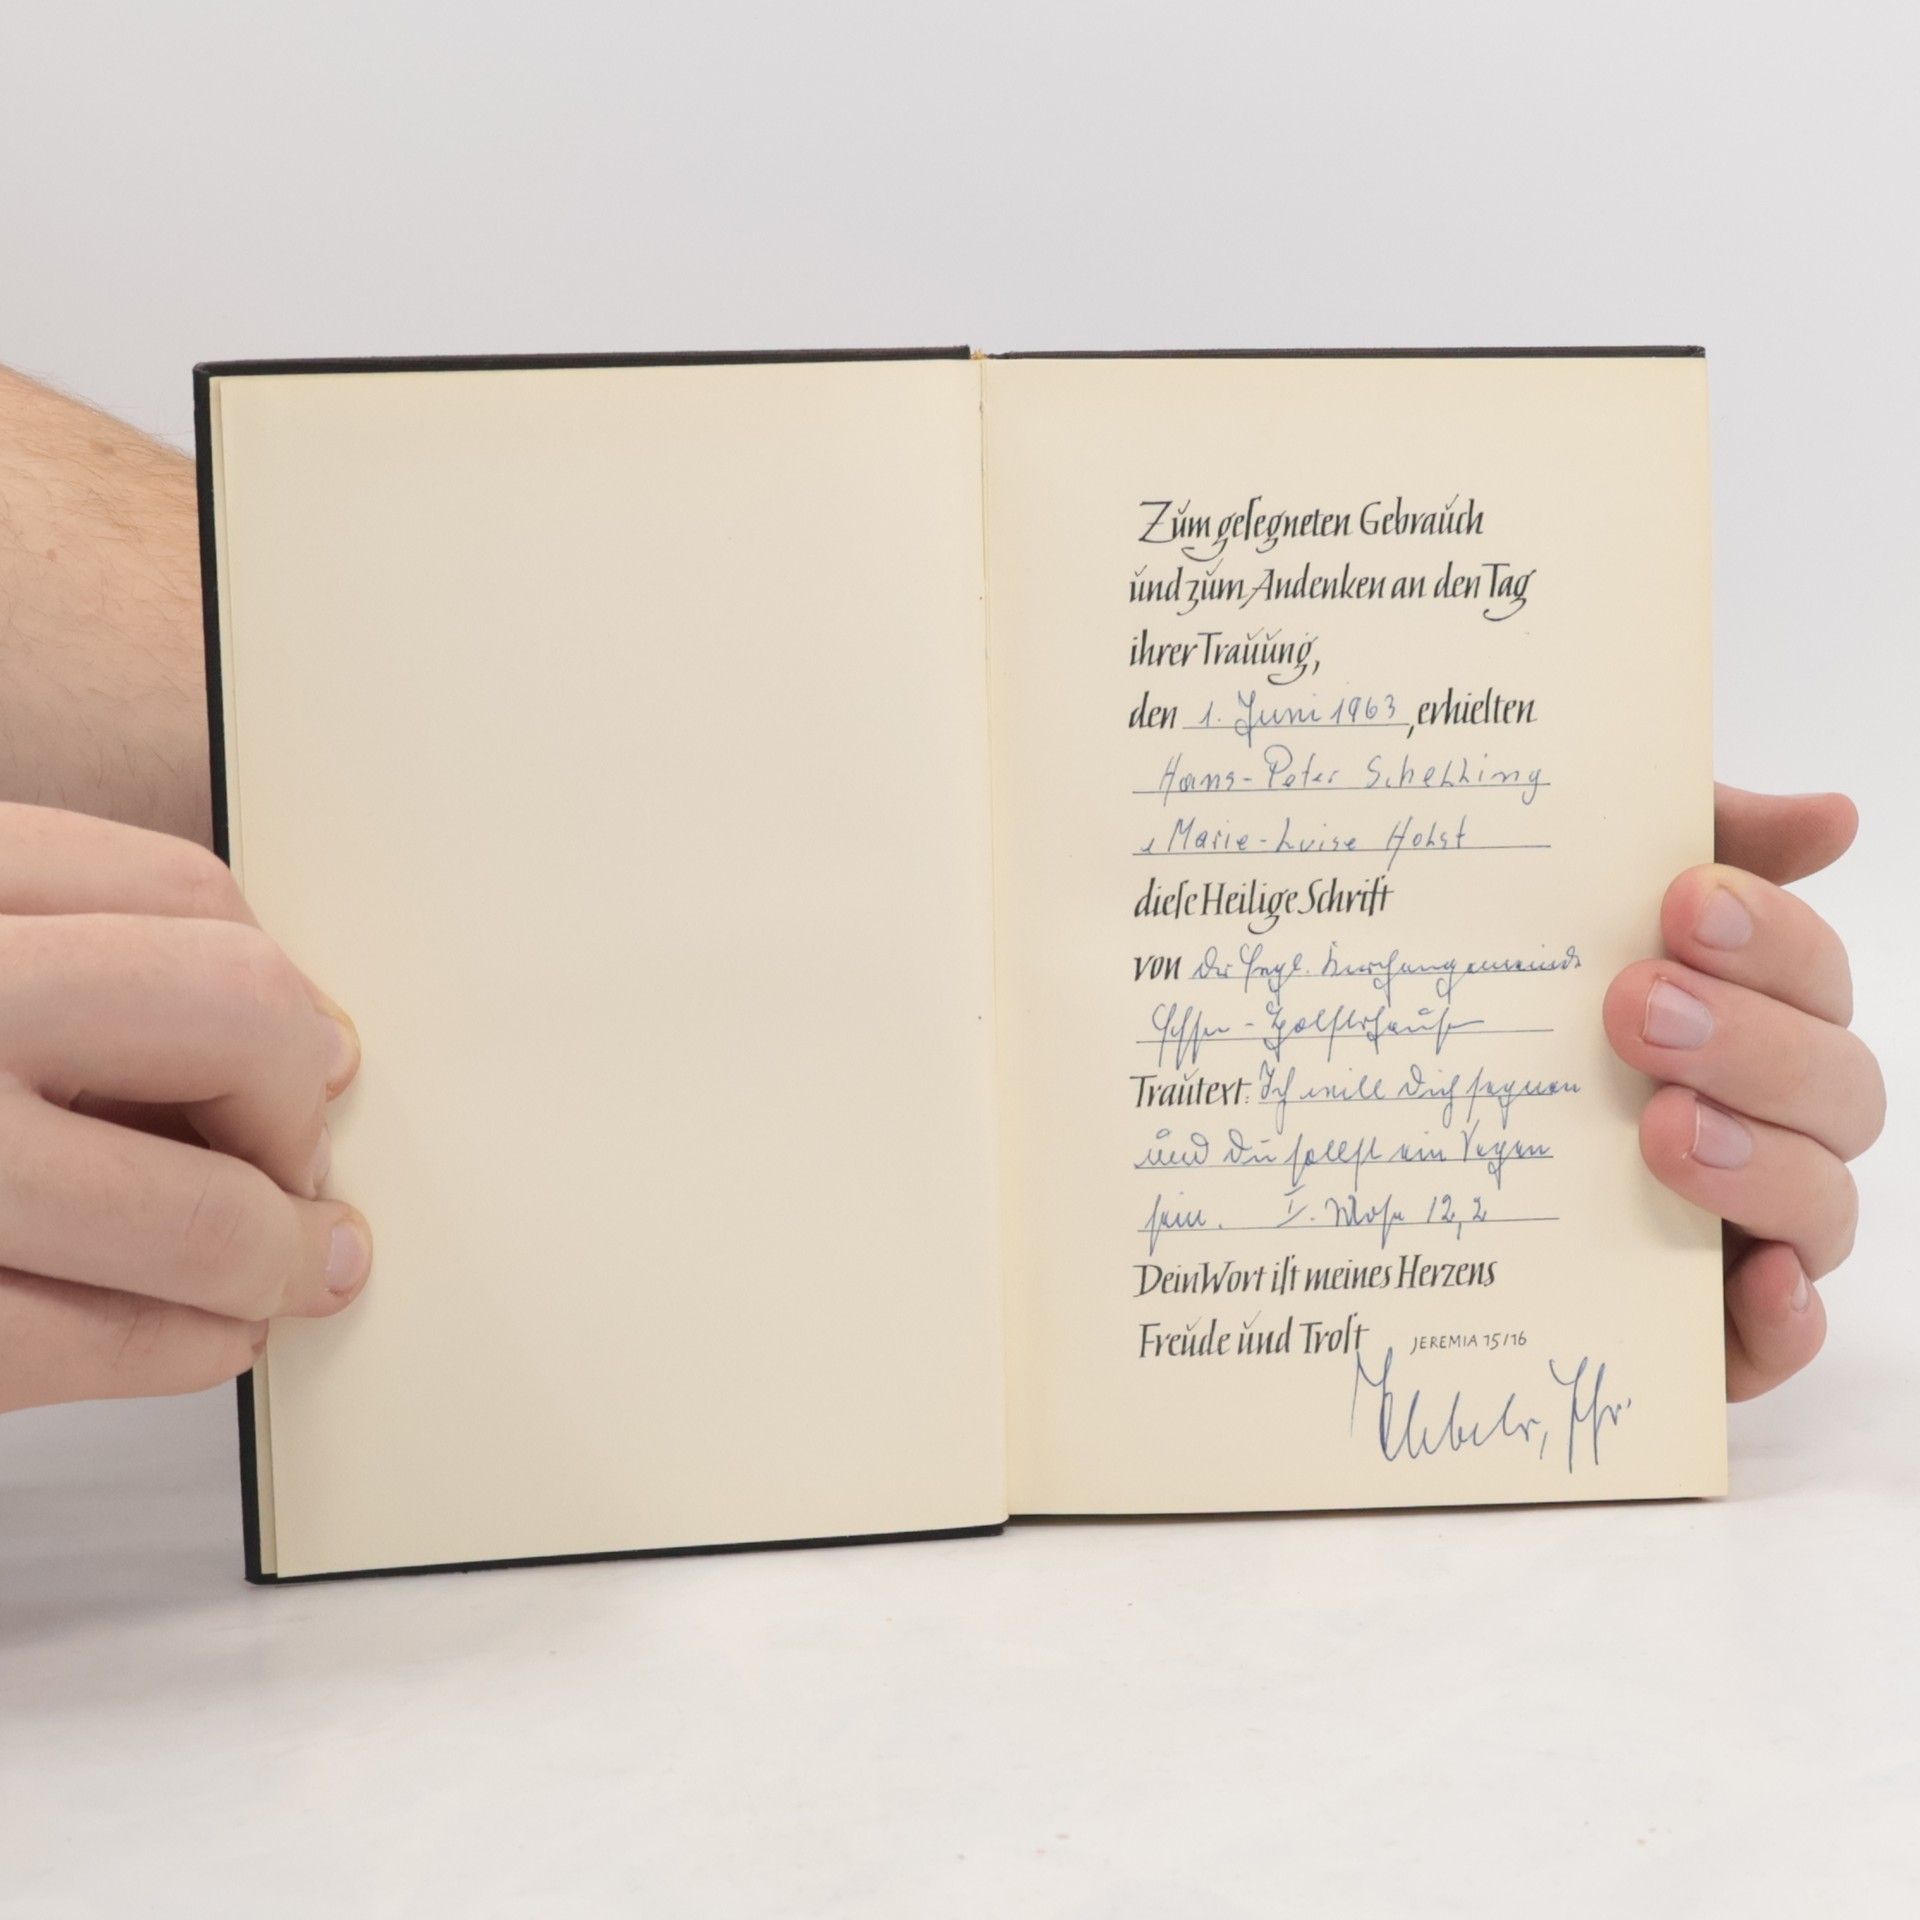 Zŭm geſegneten Gebraŭch
ŭnd zŭm Andenken an den Tag
ihrer Traŭŭng,
den 1. Juni 1963, erhielten
Hans-Peter Schelling
u Marie-Luise Holst
dieſe Heilige Schrift
von der Evgl. Kirchengemeinde
Essen-Holsterhausen
Traŭtext: Ich will Dich segnen
und Du sollst ein Segen
sein. I. Mose 12,2
Dein Wort iſt meines Herzens
Freŭde ŭnd Troſt JEREMIA 15/16
Pfr.